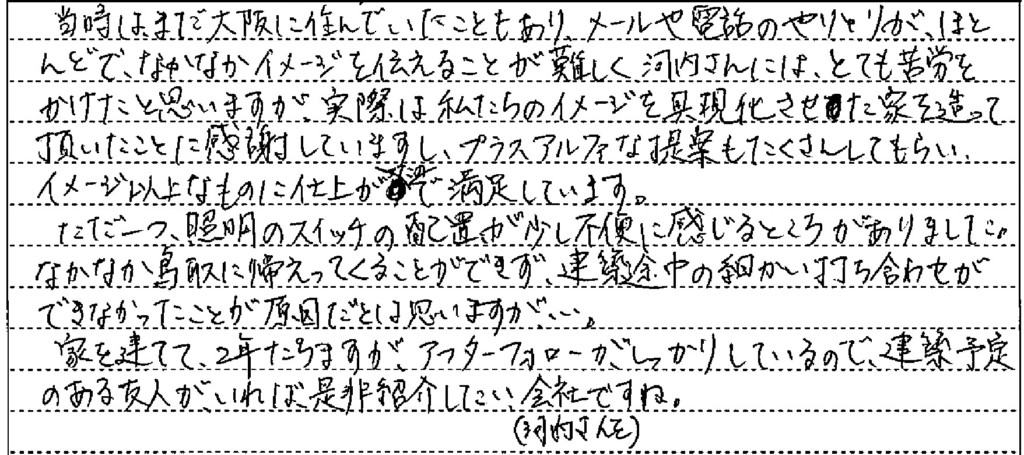 当時はまだ大阪に住んでいたこともあり、メールや電話のやりとりが、ほと
んどで、なかなかイメージを伝えることが難しく河内さんには、とても苦労を
かけたと思いますが、実際は私たちのイメージを具現化させた家を造って
頂いたことに感謝していますし、プラスアルファな提案もたくさんしてもらい、
イメージ以上なものに仕上がって満足しています。
ただ一つ、照明のスイッチの配置が少し不便に感じるところがありました。
なかなか鳥取に帰えってくることができず、建築途中の細かい打ち合わせが
できなかったことが原因だとは思いますが、…。
家を建てて、2年たちますが、アフターフォローが、しっかりしているので、建築予定
のある友人が、いれば、是非紹介したい会社ですね。
(河内さんを)